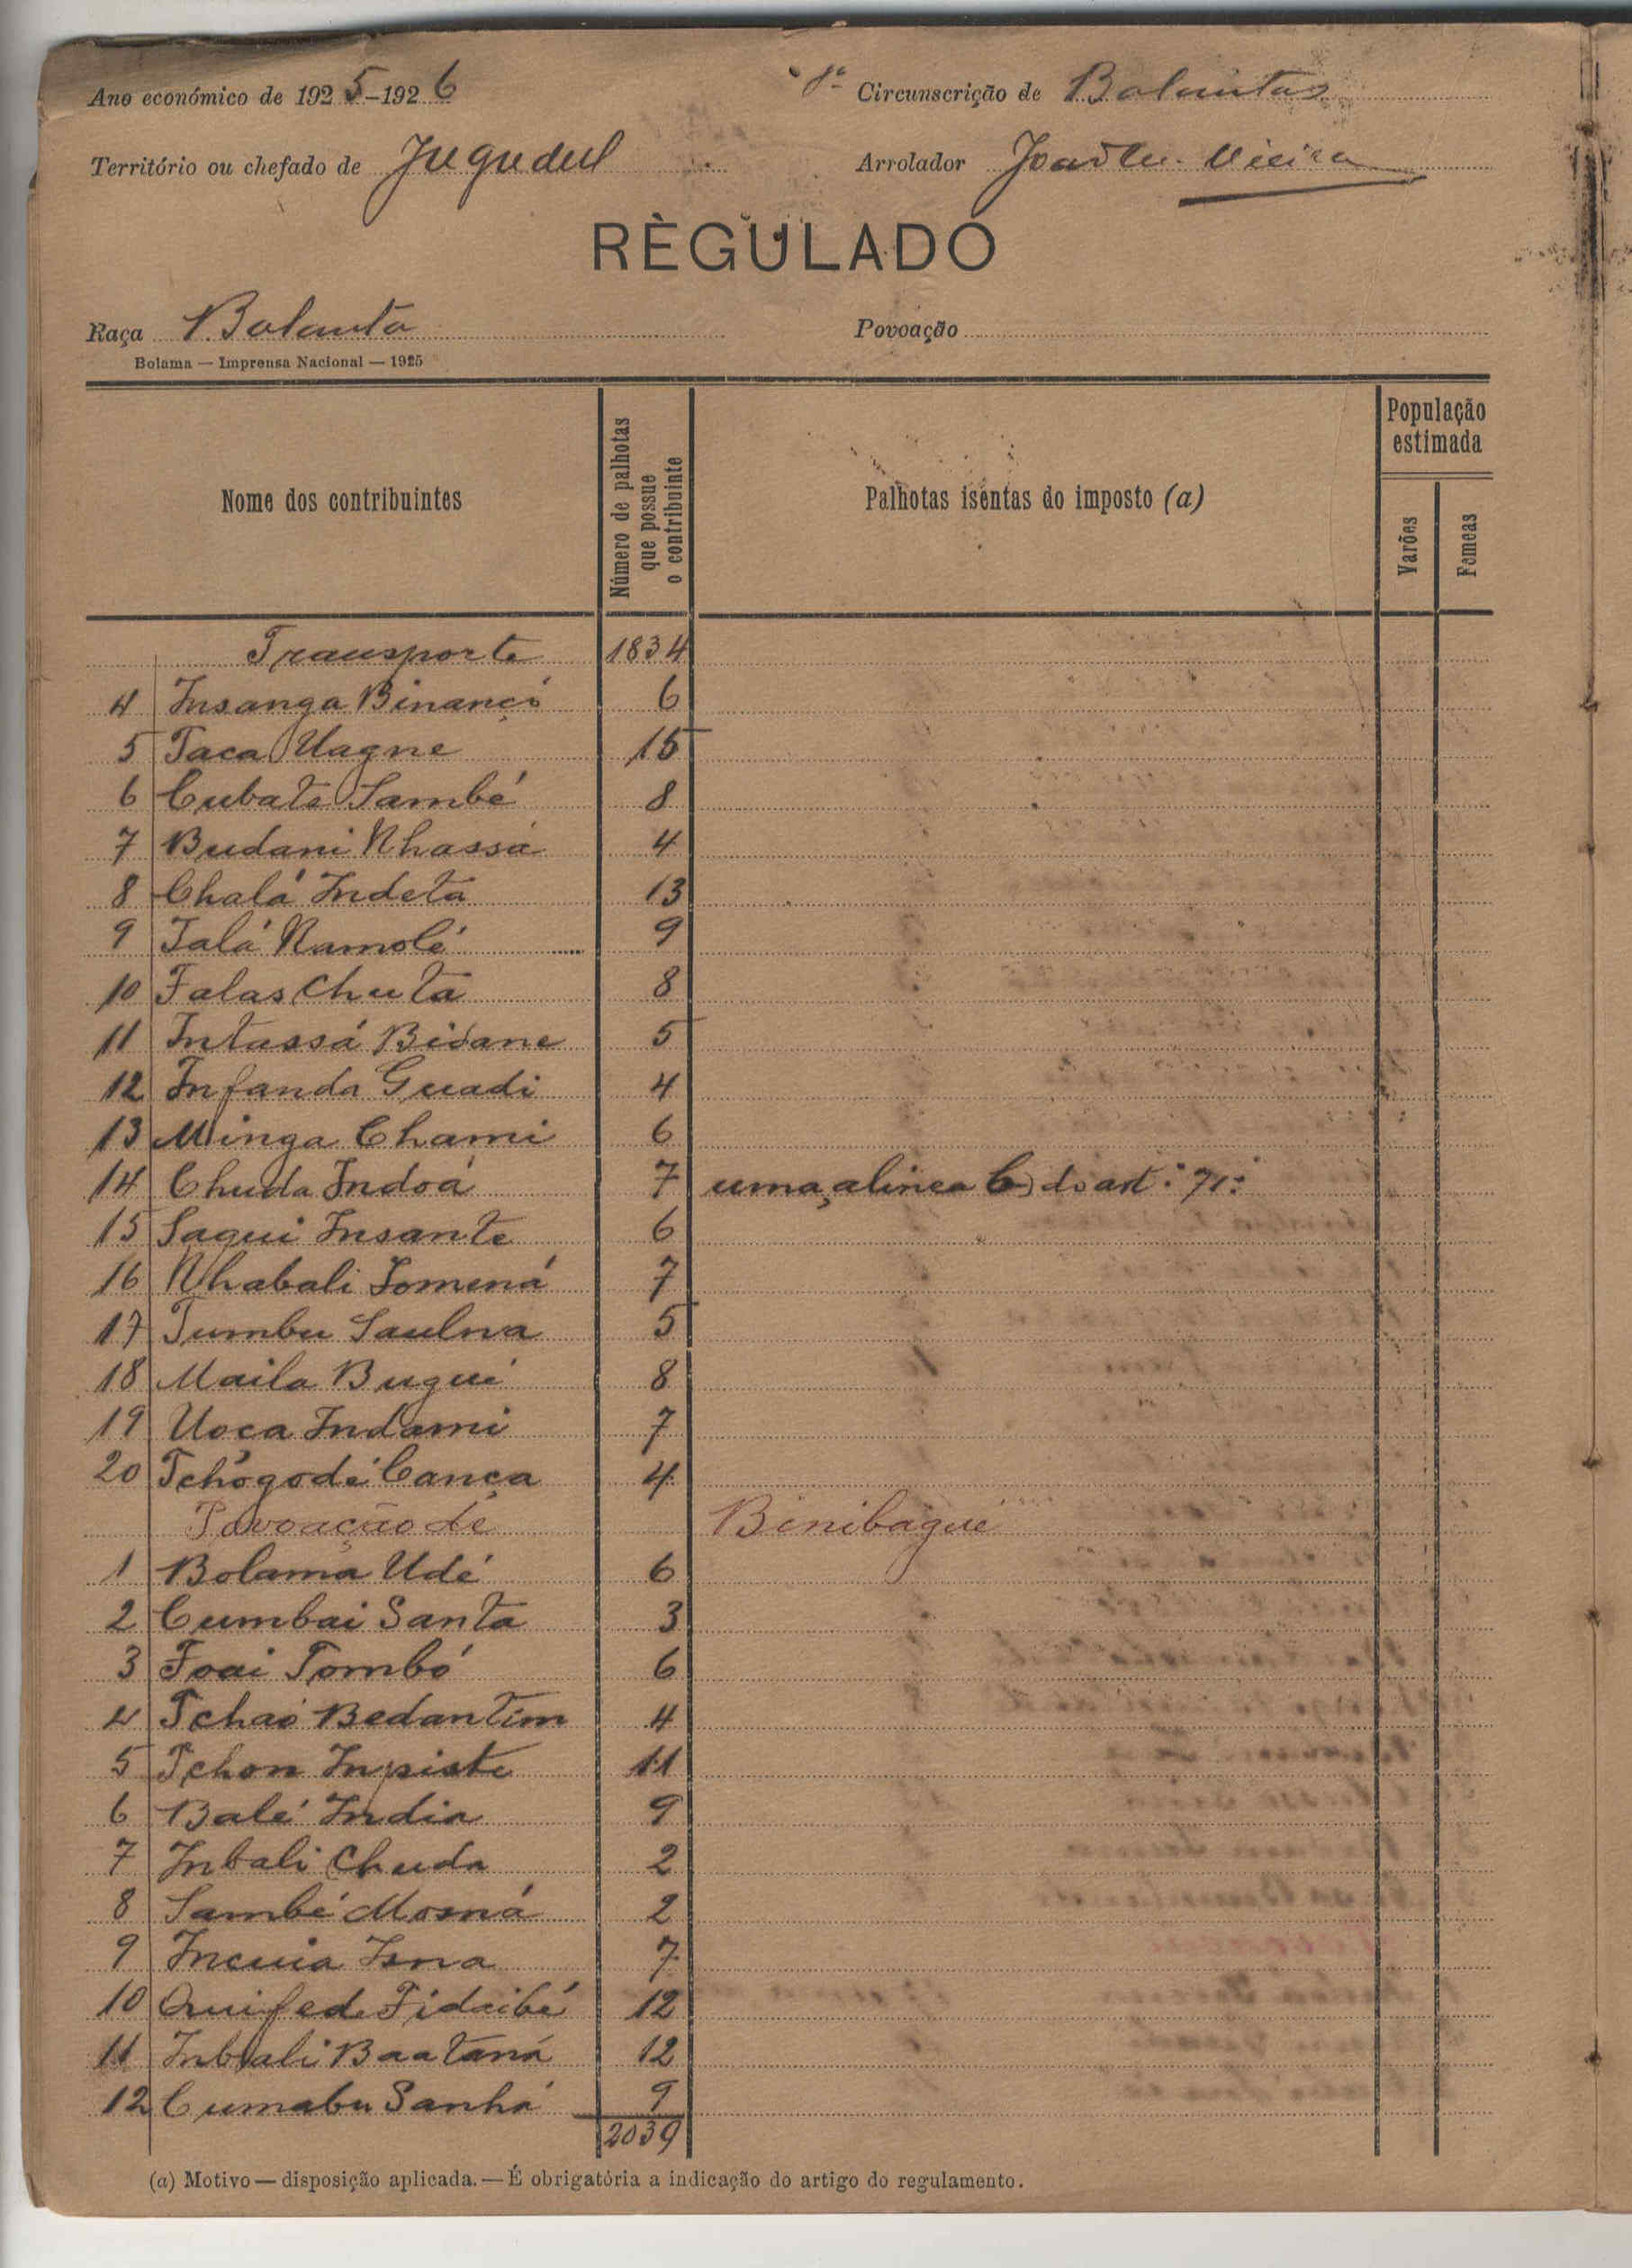 Ano económico de 1925-1926
1ª Circunscrição de Balantas
Território ou chefado de Jugudul
Arrolador João M. Vieira
REGULADO
Raça Balanta
Povoação
Bolama — Imprensa Nacional — 1925
Nome dos contribuintes
Número de palhotas que possue o contribuinte
Palhotas isentas do imposto (a)
População estimada
Varões
Fameas
Transporte 1834
4 Insanga Binançó 6
5 Taca Uagne 15
6 Cubate Sambé 8
7 Budani Nhassá 4
8 Chalá Indetá 13
9 Talá Namolé 9
10 Falas Chuta 8
11 Intassá Bidane 5
12 Infanda Guadi 4
13 Minga Chami 6
14 Chuda Indoá 7 uma, alinea b) do art.º 71.º
15 Saqui Insante 6
16 Nhabali Tomená 7
17 Tumbu Saulna 5
18 Maila Bugué 8
19 Uoca Indami 7
20 Tchógodé Canca 4
Povoação de Binibaque
1 Bolama Udé 6
2 Cumbai Santa 3
3 Foai Tombó 6
4 Tchaó Bedantim 4
5 Tchon Inpiste 11
6 Balé India 9
7 Inbali Chuda 2
8 Sambé Mosná 2
9 Incuia Isna 7
10 Quifede Fidaibé 12
11 Inbali Baataná 12
12 Cumabu Sanhá 9
2039
(a) Motivo — disposição aplicada. — É obrigatória a indicação do artigo do regulamento.